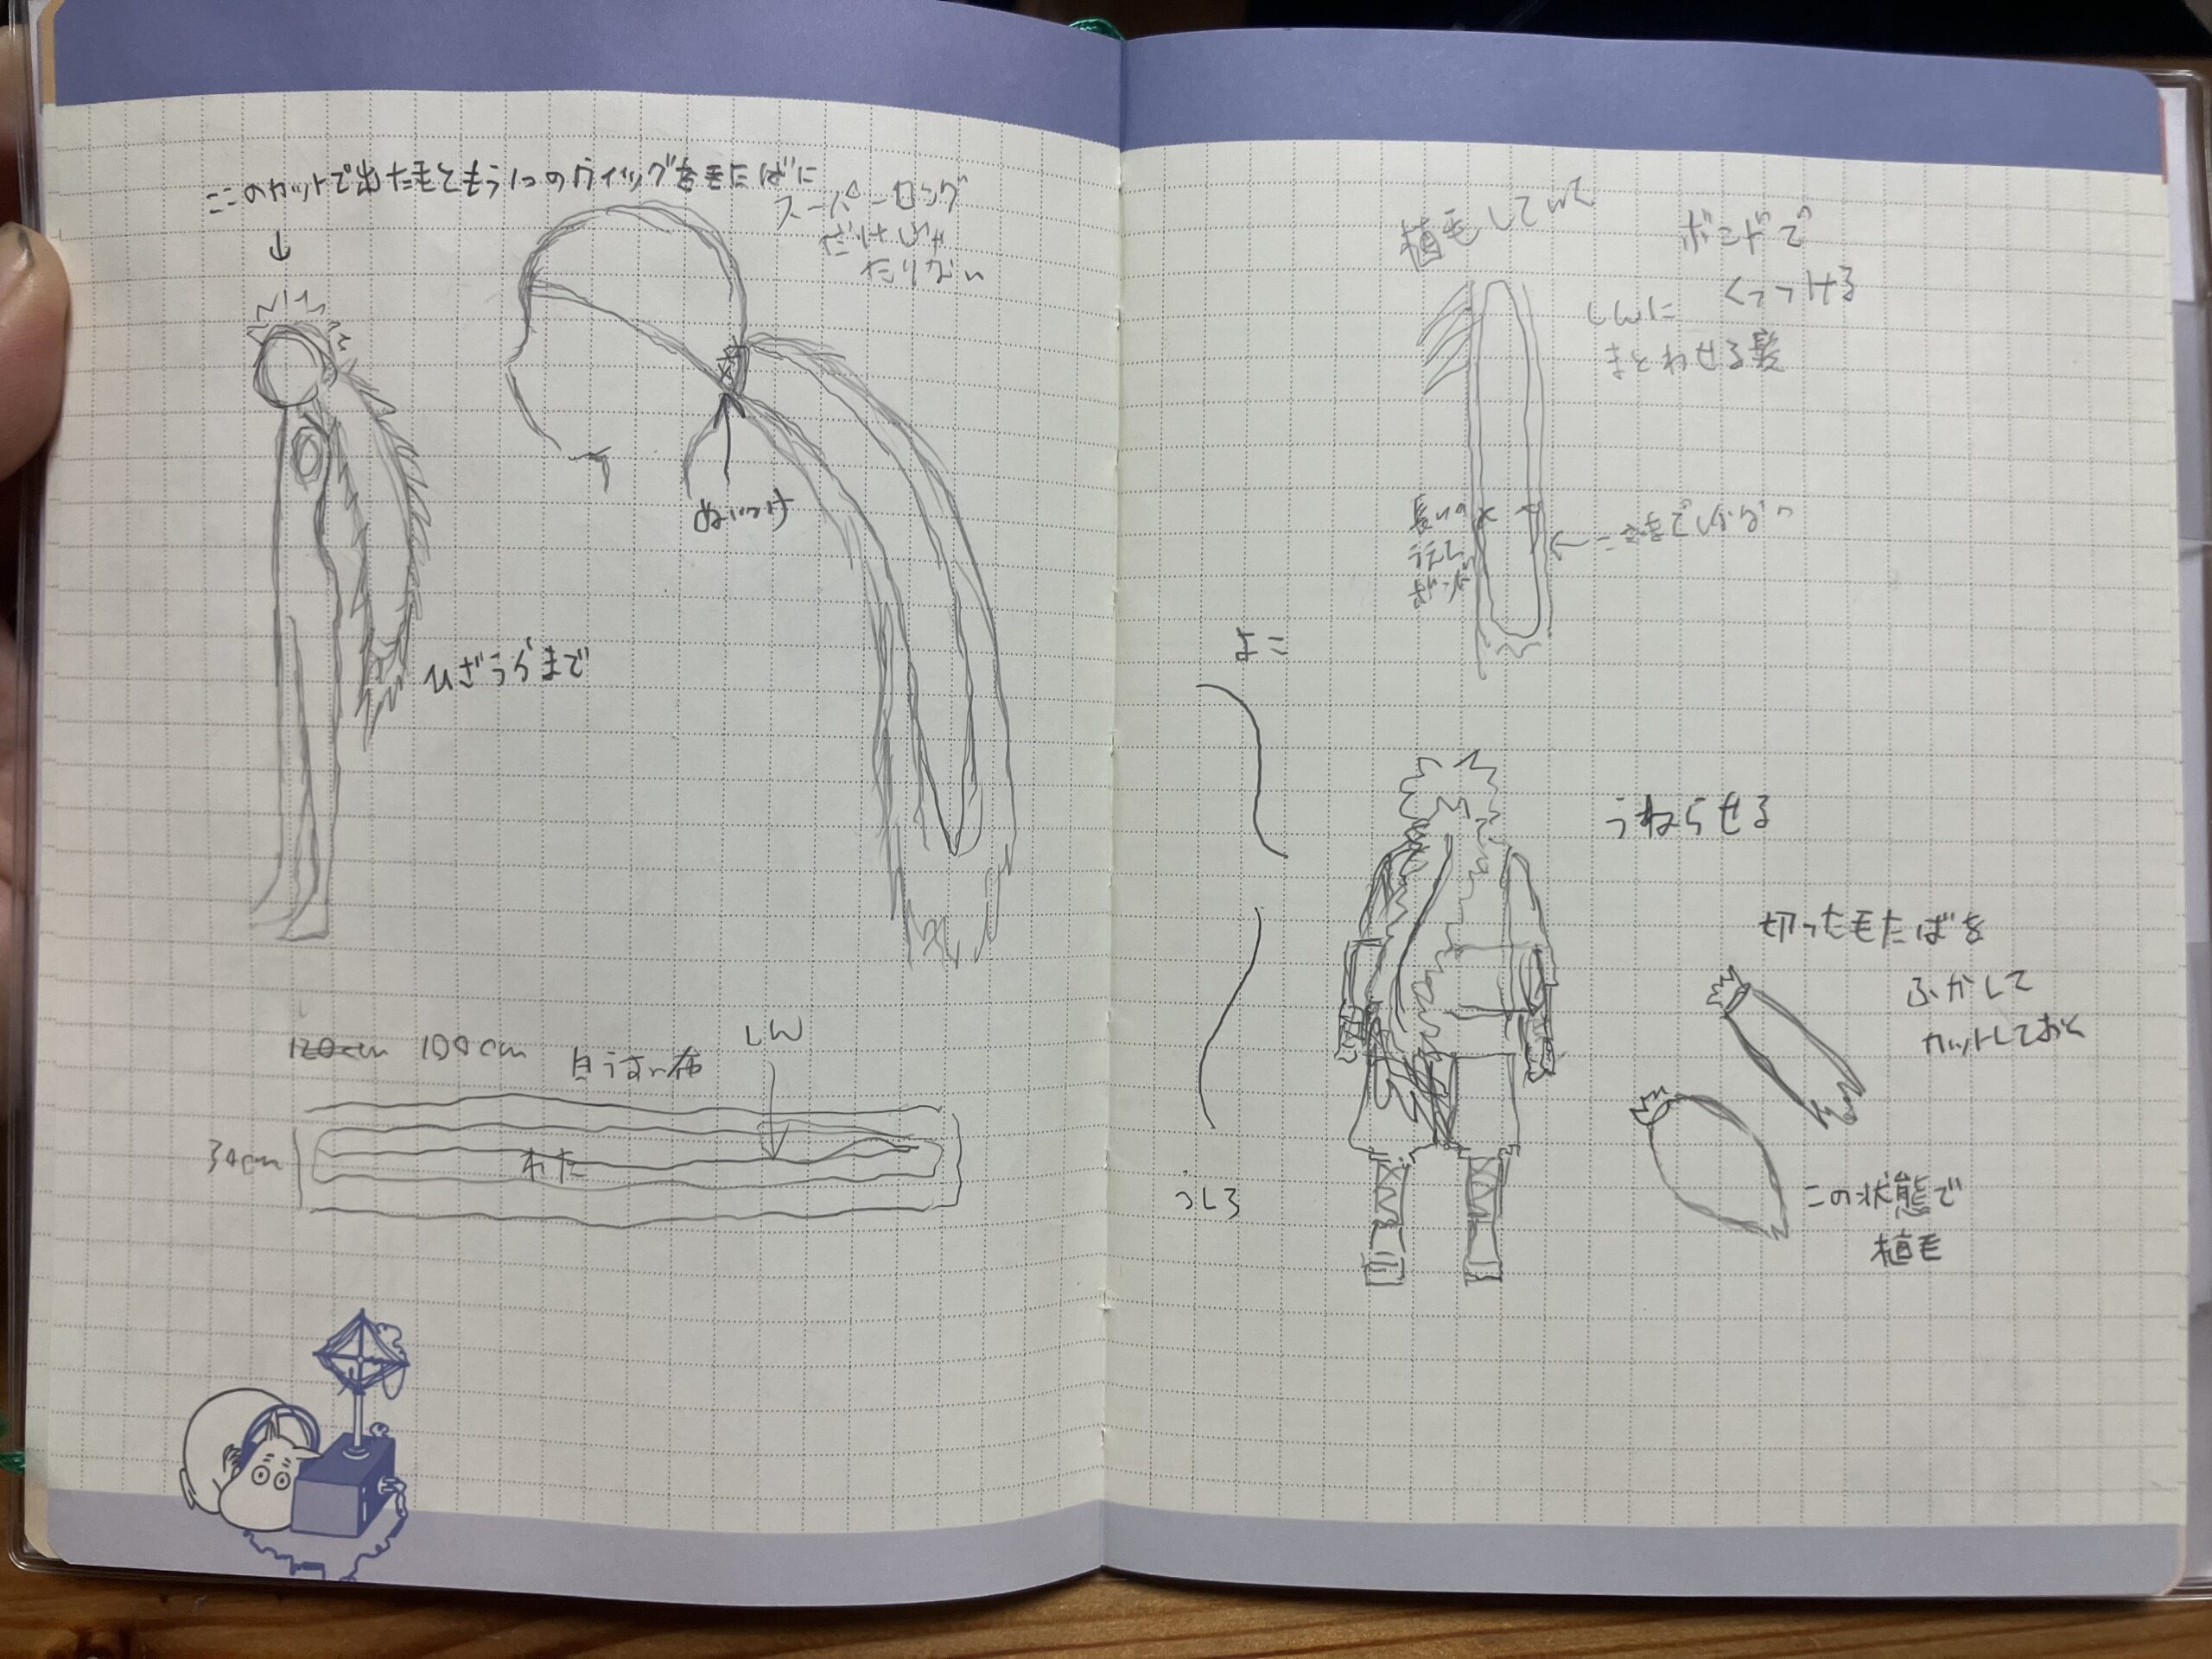 ここのカットで出た毛ともう1つのウィッグを毛たばに
↓
スーパーロング
だけじゃ
たりない
ぬいつけ
ひざうらまで
120cm 100cm
しん
うすい布
30cm
わた
植毛していく
ボンドで
くっつける
しんに
まとわせる髪
長いの
うえて
ボンド
←
よこ
うねらせる
切った毛たばを
ふかして
カットしておく
うしろ
この状態で
植毛